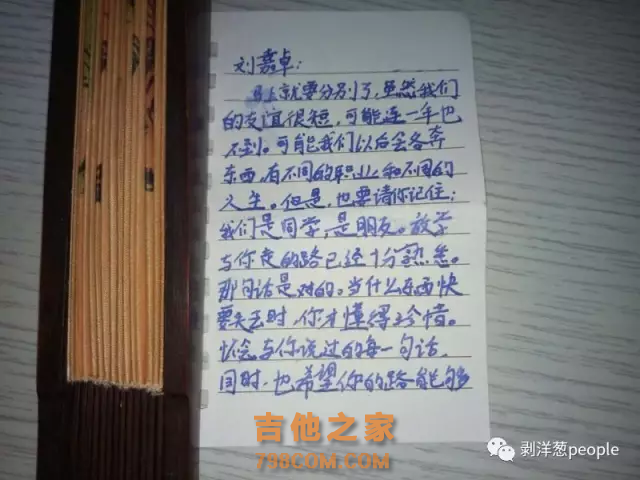 刘嘉卓：
马上就要分别了，虽然我们
的友谊很短，可能连一年也
不到。可能我们以后会各奔
东西，有不同的职业和不同的
人生。但是，也要请你记住：
我们是同学，是朋友。放学
与你走的路已经十分熟悉。
那句话是对的。当什么东西快
要失去时，你才懂得珍惜。
怀念与你说过的每一句话。
同时，也希望你的路能够
吉他之家
798COM.COM
剥洋葱people